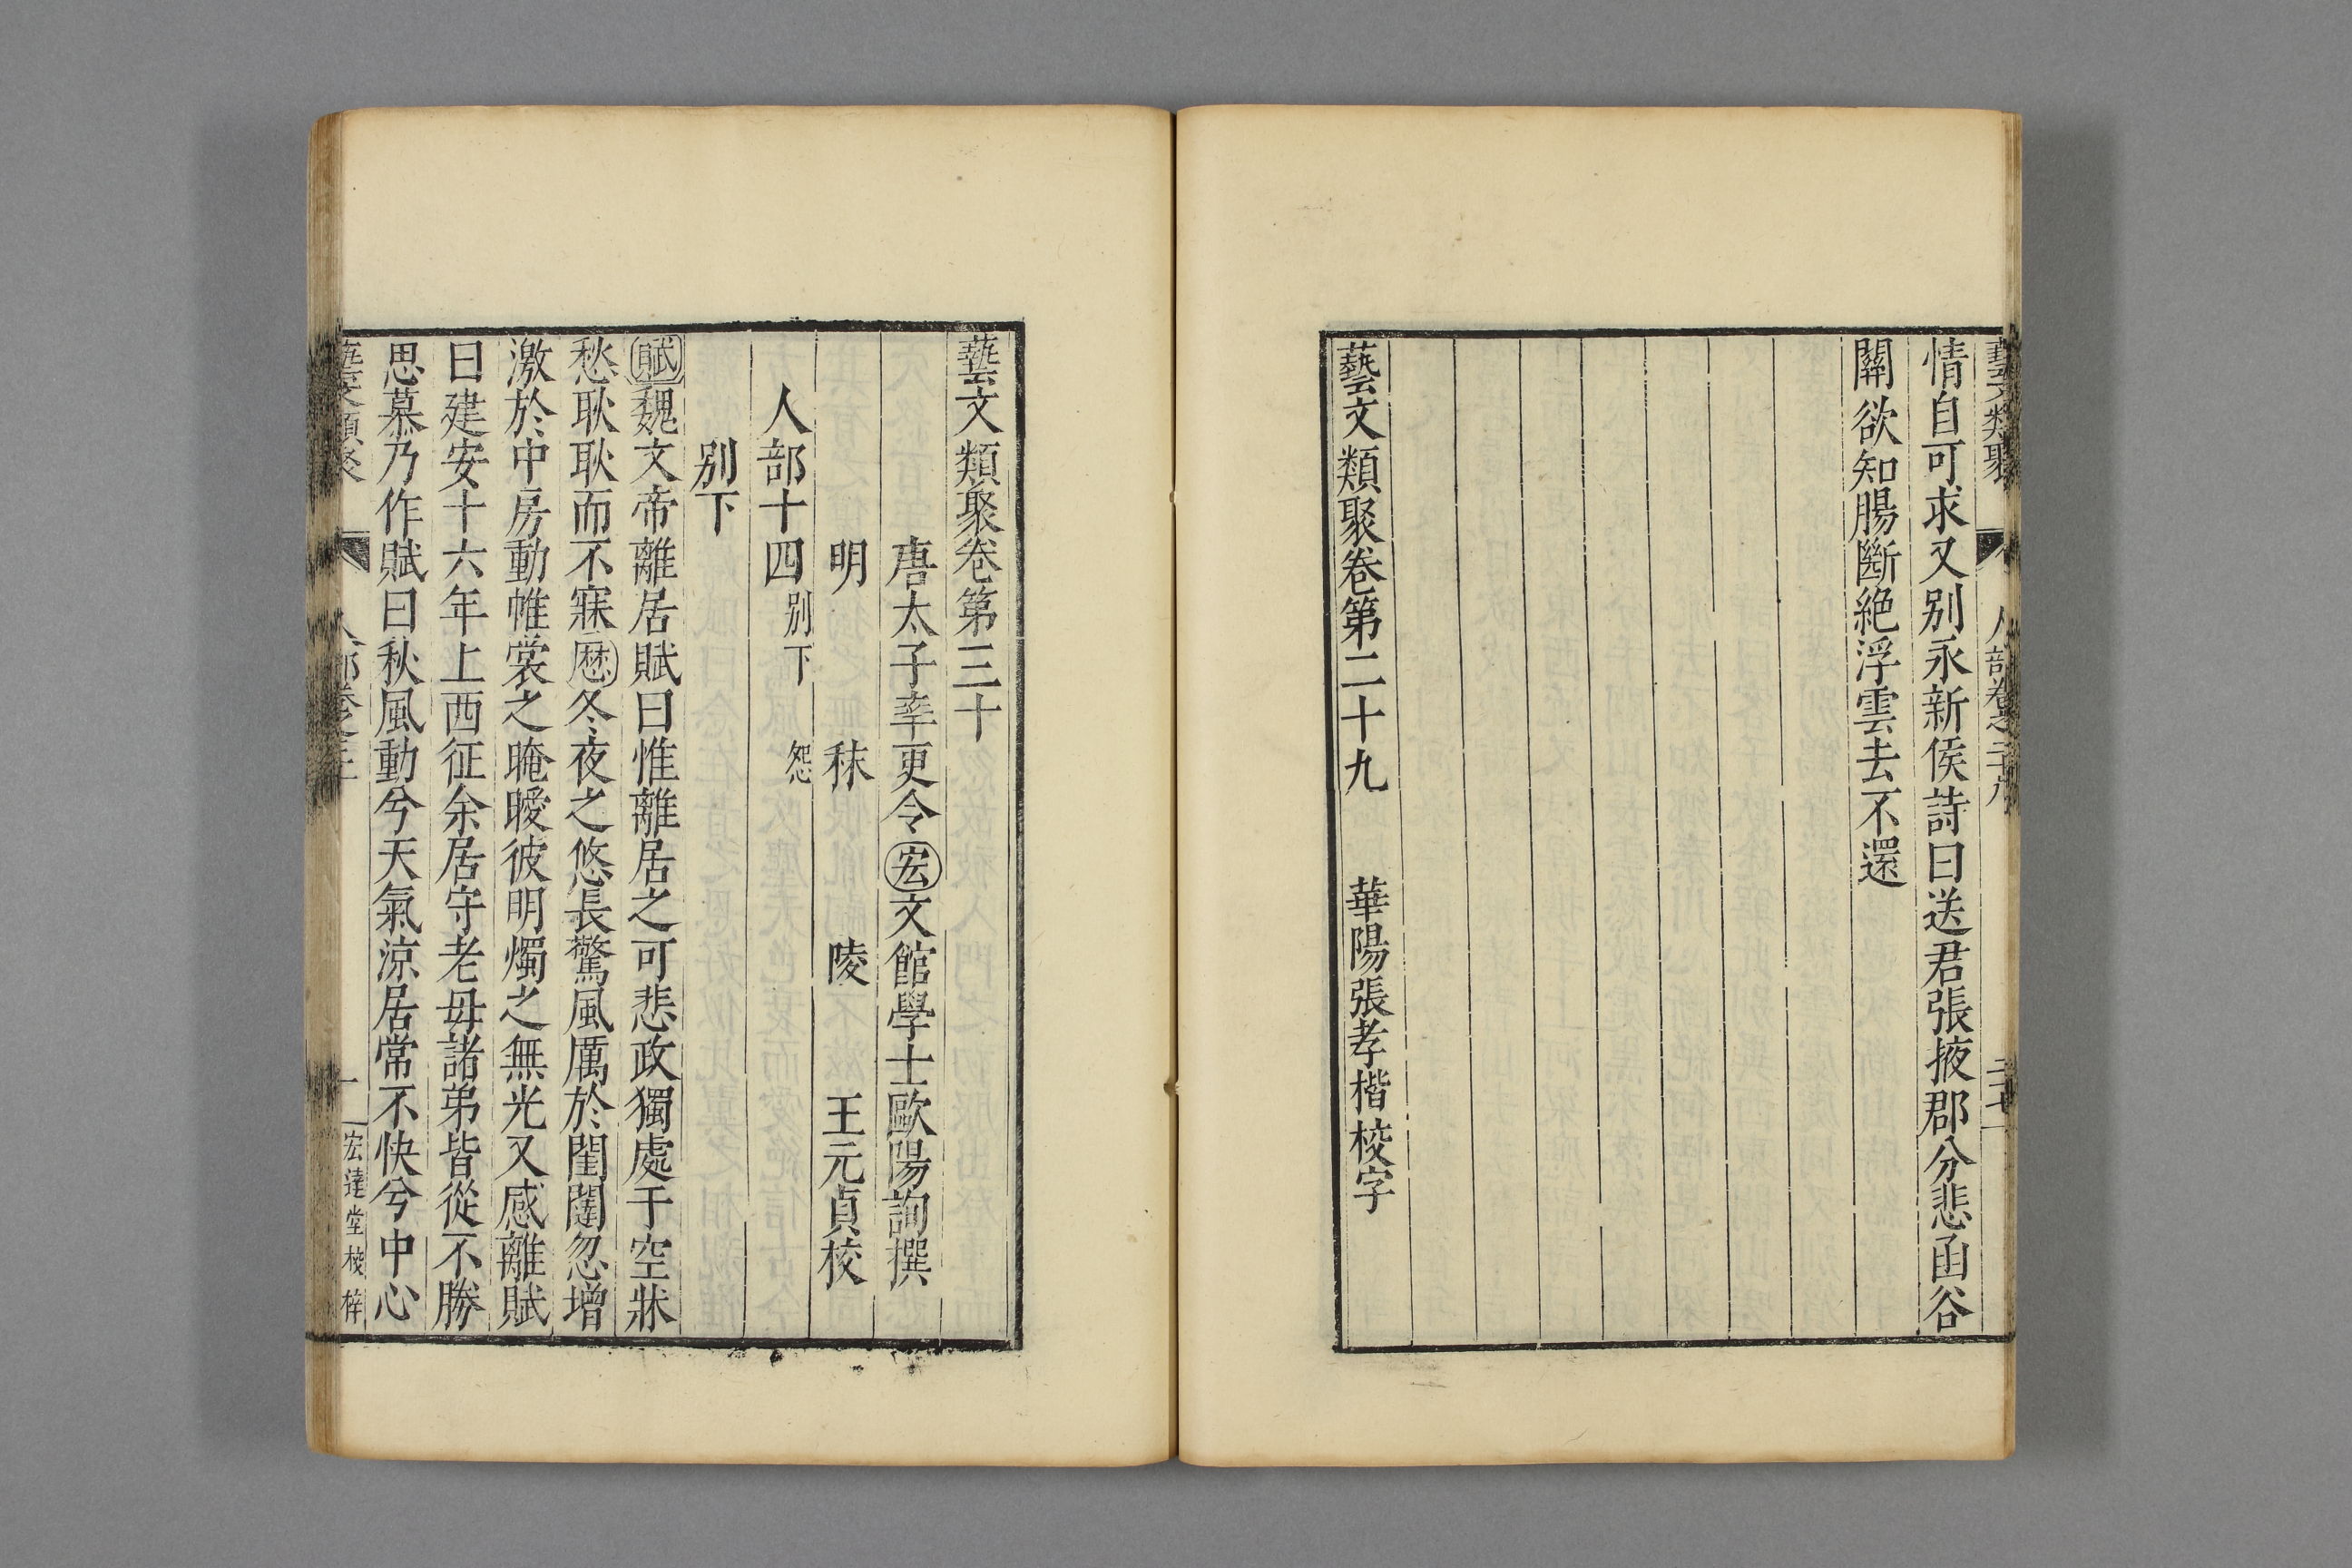 藝文類聚 人部卷之二十九 二十七
情自可求又别永新侯詩曰送君張掖郡分悲函谷
關欲知腸斷絶浮雲去不還
藝文類聚卷第二十九 華陽張孝楷校字
藝文類聚卷第三十
唐太子率更令宏文館學士歐陽詢撰
明 秣 陵 王元貞校
人部十四 别下 怨
别下
賦魏文帝離居賦曰惟離居之可悲政獨處于空牀
愁耿耿而不寐歷冬夜之悠長驚風厲於閨闥忽增
激於中房動帷裳之晻曖彼明燭之無光又感離賦
曰建安十六年上西征余居守老母諸弟皆從不勝
思慕乃作賦曰秋風動兮天氣涼居常不快兮中心
藝文類聚 人部卷之三十 一 宏達堂校梓